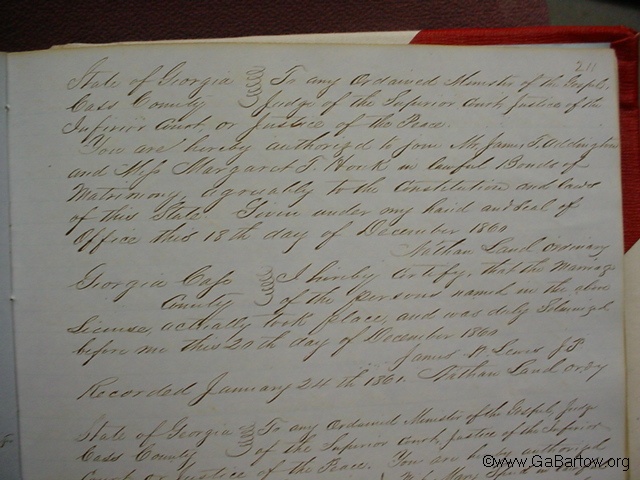 211
State of Georgia To any Ordained Minister of the Gospel,
Cass County Judge of the Superior Court, Justice of the
Inferior Court, or Justice of the Peace.
You are hereby authorized to join Mr James T. Addington
and Miss Margaret T. Hook in lawful Bonds of
Matrimony, agreeably to the Constitution and laws
of this State. Given under my hand and Seal of
Office this 18th day of December 1860
Nathan Land ordinary
Georgia Cass I hereby certify, that the Marriage
County of the persons named in the above
License, actually took place, and was duly Solemnized
before me this 20th day of December 1860
James Lewis JP
Recorded January 24th 1861. Nathan Land ordy
State of Georgia To any Ordained Minister of the Gospel, Judge
Cass County of the Superior Court, Justice of the Inferior
Court, or Justice of the Peace. You are hereby authorized
©www.GaBartow.org